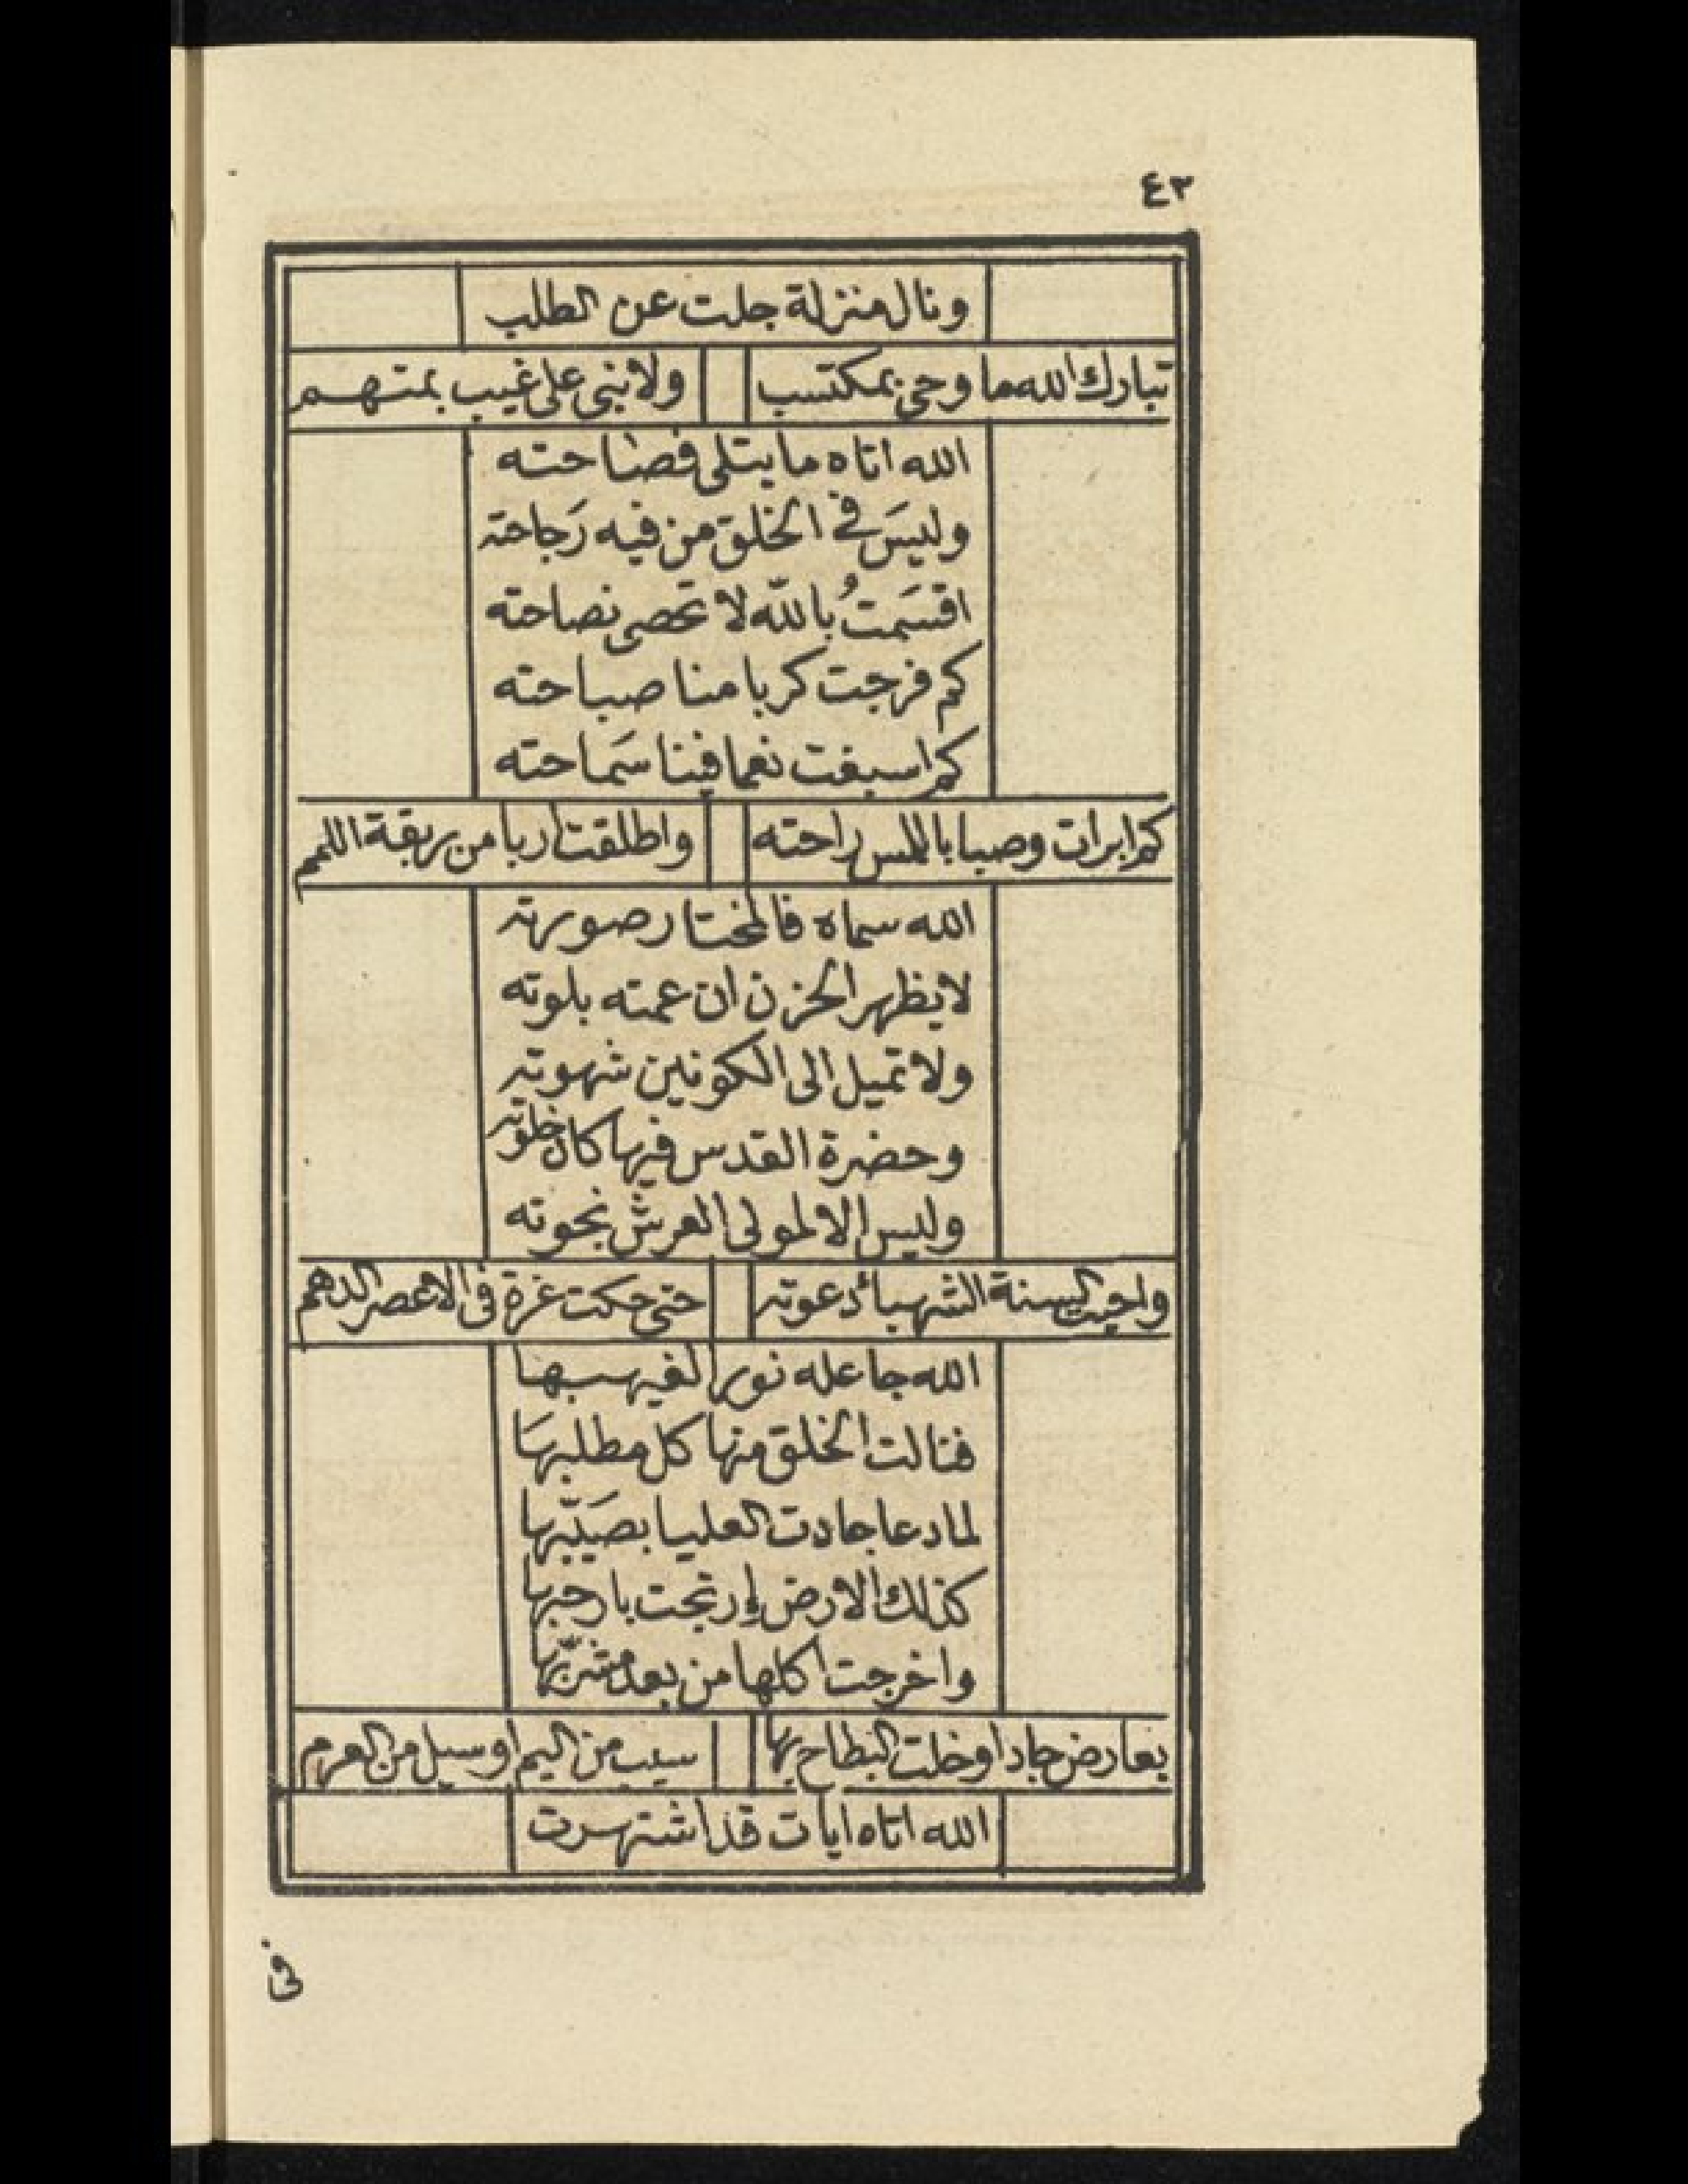 ٤٢
ونال منزلة جلت عن الطلب
تبارك الله ما وحي بمكتسب ولا نبي على غيب بمتهم
الله اتاه ما يتلى فصاحته
وليسَ في الخلق من فيه رَجاحته
اقسَمتُ بالله لا تحصى نصاحته
كم فرجت كربا منا صباحته
كم اسبغت نعما فينا سَماحته
كم ابرات وصبا باللمس راحته واطلقت اربا من ربقة اللمم
الله سماه فالمختار صورته
لا يظهر الحزن ان عمته بلوته
ولا تميل الى الكونين شهوته
وحضرة القدس فيها كان خلوته
وليس الا لمولى العرش نجوته
واحيت السنة الشهباء دعوته حتى حكت غرة في الاعصر الدهم
الله جاعله نور الغيهبها
فنالت الخلق منها كل مطلبهَا
لما دعا جادت العليا بصَيّبها
كذلك الارض إرتجت بارحبها
واخرجت اكلها من بعد
بعارض جاد او خلت البطاح بها سيب من اليم او سيل من العرم
الله اتاه ايات قد اشتهرت
في